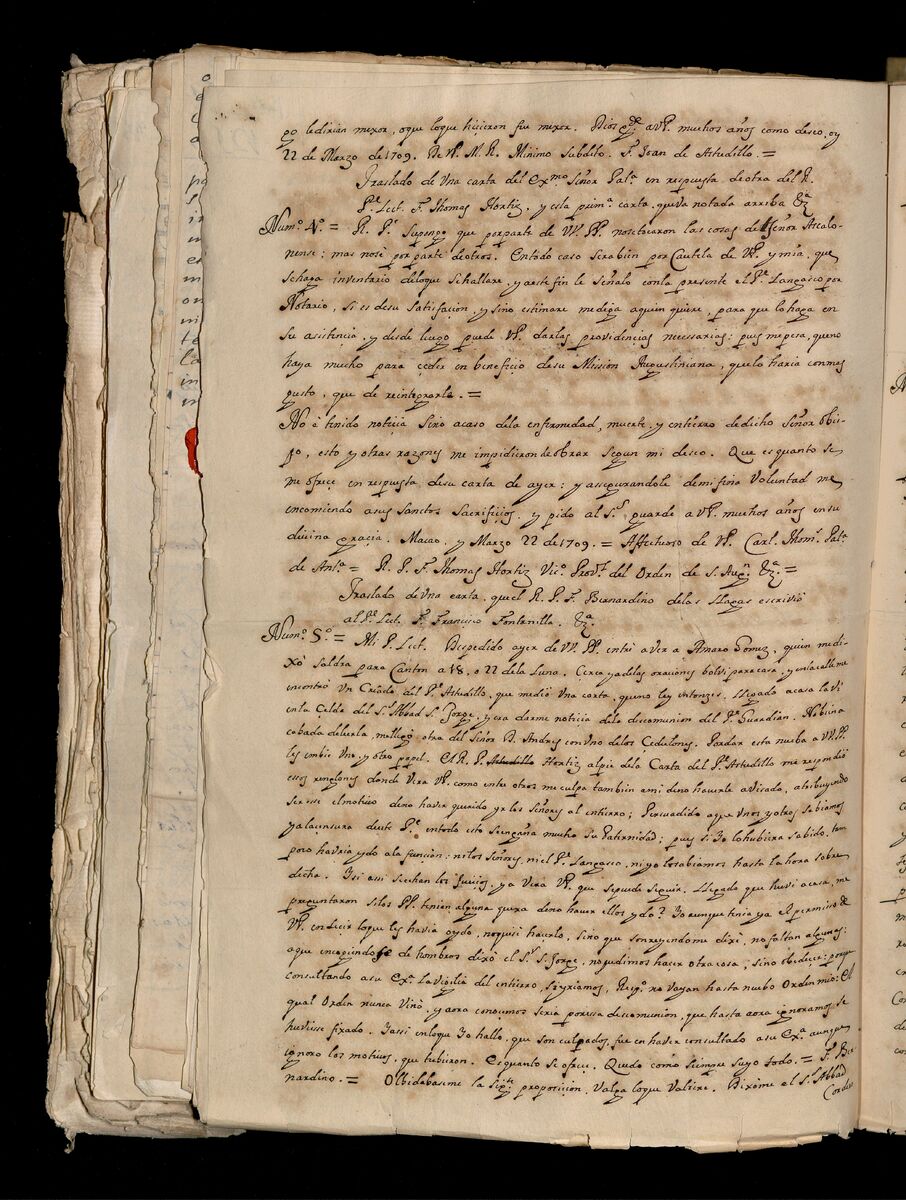 go le dirian mexor, o que lo que hizieron fue mexor. Dios gde a VP. muchos años como deseo, oy
22 de Marzo de 1709. De VP. M. R. Minimo Subdito. Fr. Joan de Astudillo. =
Traslado de Una carta del Exmo Señor Pata. en respuesta de otra del R.
Pe. Lect. Fr. Thomas Hortiz, y esta primra. carta, que va notada arriba &a
Numo. 4o. = R. Pe. Supongo que por parte de VV. PP. no se tocaron las cosas del Señor Ascalo-
nense; mas no sè por parte de otros. En todo caso sera bien por Cautela de VP. y mia, que
se haga inventario de lo que se hallare, y a este fin le Señalo con la presente el Pe. Langasco por
Notario, si es de su satisfacion, y sino estimare me diga a quien quiere, para que lo haga en
su asistencia, y desde luego puede VP. dar las providencias necessarias: pues me pesa, que no
haya mucho para ceder en beneficio de su Mission Augustiniana, que lo haria con mas
gusto, que de reintegrarle. =
No è tenido noticia sino acaso de la enfermedad, muerte, y entierro de dicho Señor Obis-
po, esto y otras razones me impidieron de obrar segun mi deseo. Que es quanto se
me ofrece en respuesta de su carta de ayer: y assegurandole de mi fina Voluntad me
encomiendo a sus Sanctos Sacrificios, y pido al Sr. guarde a VP. muchos años en su
divina gracia. Macao, y Marzo 22 de 1709. = Affectuoso de VP. Carl. Thom. Pata.
de Anta. = R. P. Fr. Thomas Hortiz Vico. Provl. del Orden de S. Augn. &a. =
Traslado de Una carta, que el R. P. F. Bernardino de las Llagas escriviò
al Pe. Lect. Fr. Francisco Fontanilla. &a.
Numo. 5o. = Mi P. Lect. Despedido ayer de VV. PP. entrè a ver a Amaro Gomez, quien me di-
xò saldra para Canton a 18, o 22 de la Luna. Cerca ya de las oraciones bolvi para casa, y en la calle me
encontrò Un Criado del Pe. Astudillo, que me diò Una carta, que no ley entonzes. Llegado a casa la vi
en la Celda del Sr. Abbad S. Jorge, y era darme noticia de la descomunion del Pe. Guardian. No bien a
cabada de leerla, me llegò otra del Señor D. Andres con Uno de los Cedulones. Por dar esta nueba a VV. PP.
les embie Uno, y otro papel. El R. P. Hortiz al pie de la Carta del Pe. Astudillo me respondiò
essos renglones donde Vera VP. como entre otros me culpa tambien a mi de no haverle avisado, atribuyendo
ser esse el motivo de no haver querido yr los Señores al entierro; Persuadido a que Unos y otros sabiamos
ya la censura de este Pe. en todo esto se engaña mucho su Paternidad; pues si Yo lo hubiera sabido, tam
poco havria ydo a la funcion: ni los Señores, ni el Pe. Langasco, ni yo lo sabiamos hasta la hora sobre
dicha. Y si assi se echan los juicios, ya Vera VP. que se puede seguir. Llegado que huvi a casa, me
preguntaron si los PP. tenian alguna quexa de no haver ellos ydo? Yo aunque tenia ya el permisso de
VP. en decir lo que les havia oydo, no quise hacerlo, sino que sonrryendome dixè, no faltan algunas:
a que encogiendose de hombros dixò el Sr. S. Jorge, no pudimos hacer otra cosa, sino obedecer: porque
consultando a su Exa. la Vigilia del entierro, si yriamos, Respo. no vayan hasta nuebo Orden mio: El
qual Orden nunca vino, y aora conocemos seria por essa descomunion, que hasta aora ignoramos, se
huviesse fixado. Y assi en lo que Yo hallo, que son culpados, fue en haver consultado a su Exa. aunque
ignoro los motivos, que tubieron. Es quanto se ofrece. Quedo como siempre suyo todo. = Fr. Ber
nardino. = Olbidabaseme la sigte. proposicion. Valga lo que Valiere. Dixome el Sr. Abbad
Cordero